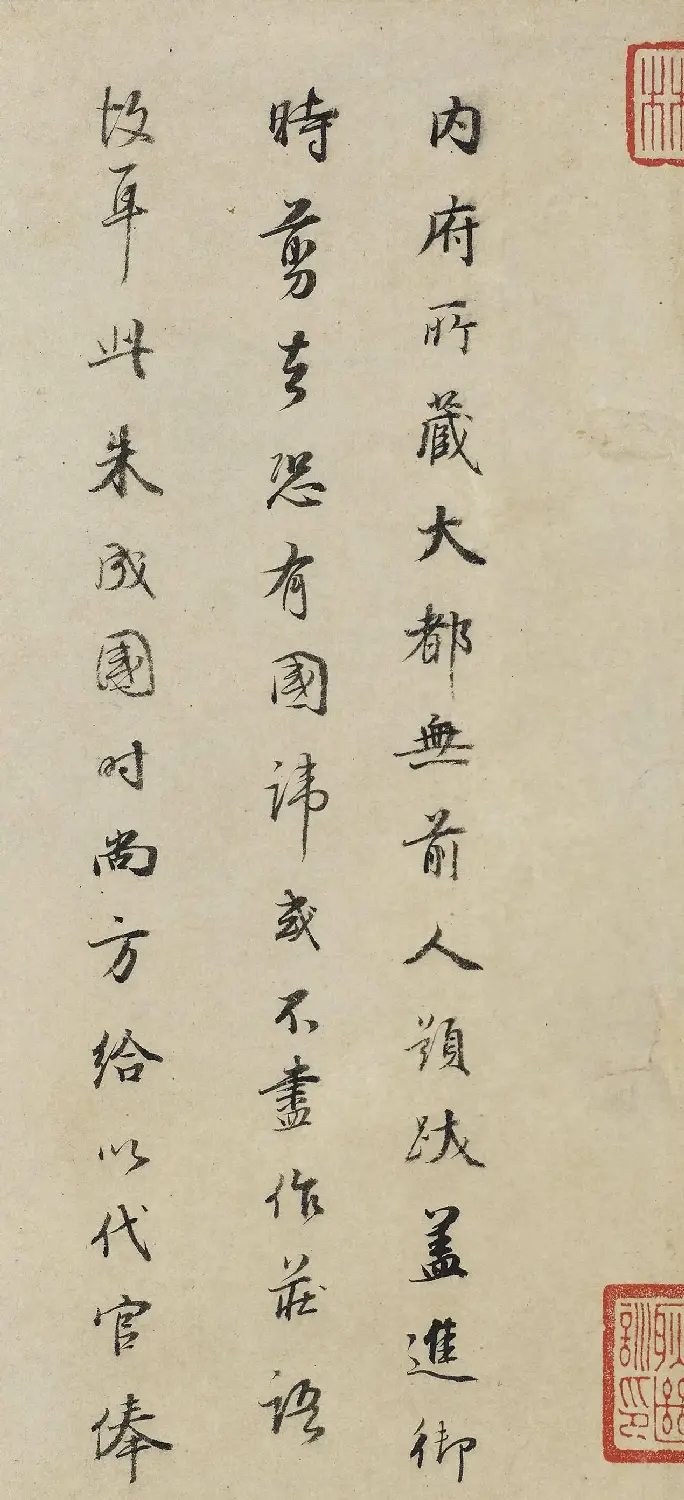 内府所蔵大都無前人題跋盖進御
時剪去恐有國諱或不盡作莊語
故耳此朱成國时尚方給以代官俸